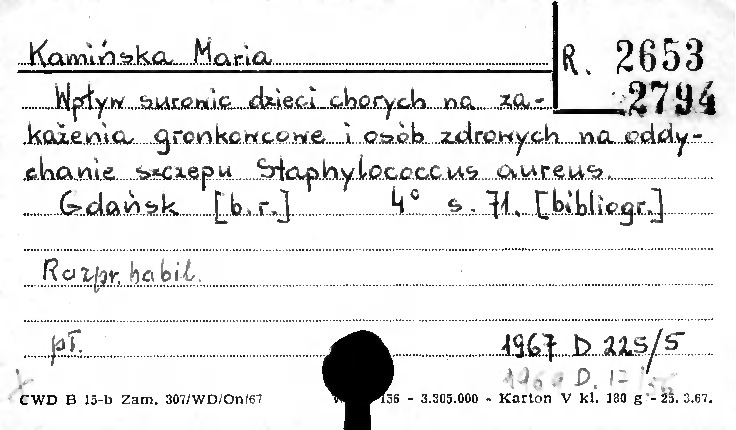 Kamińska Maria
R. 2653
2794
Wpływ surowic dzieci chorych na za-
każenia gronkowcowe i osób zdrowych na oddy-
chanie szczepu Staphylococcus aureus.
Gdańsk [b.r.] 4° s. 71. [bibliogr.]
Rozpr. habil.
pł. 1967 D 225/5
CWD B 15-b Zam. 307/WD/On/67 156 - 3.305.000 - Karton V kl. 180 g - 25. 3.67.